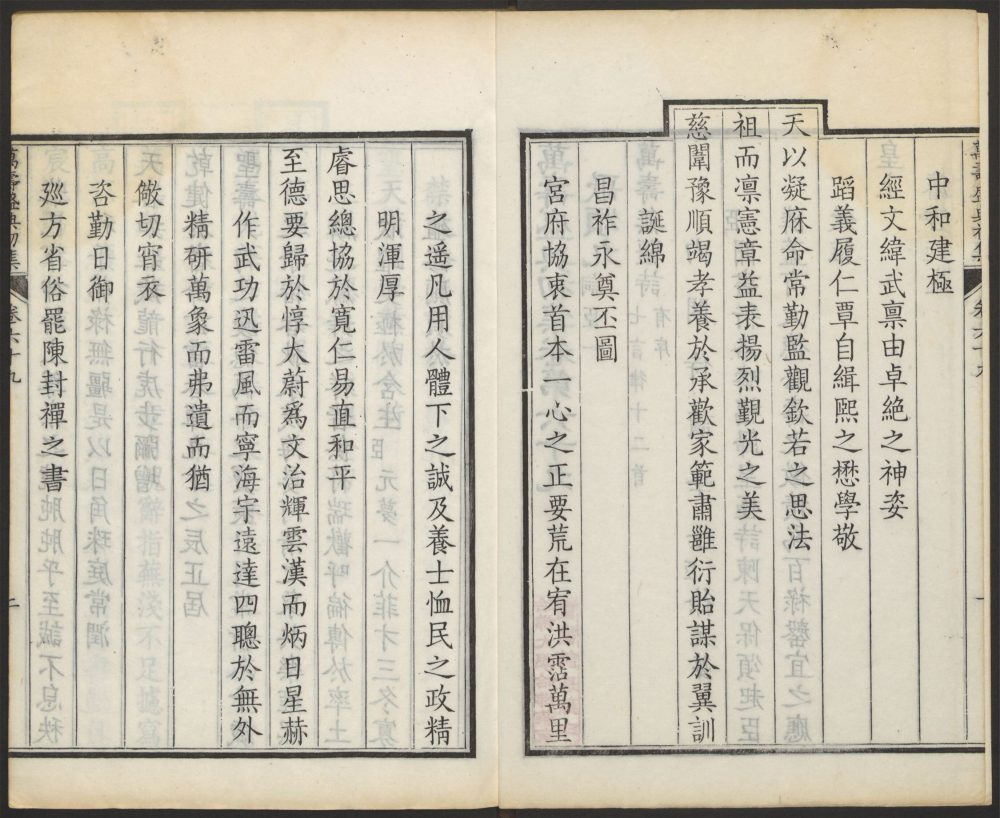 中和建極
經文緯武禀由卓絶之神姿
蹈義履仁覃自緝熙之懋學敬
天以凝庥命常勤監觀欽若之思法
祖而凛憲章益表揚烈覲光之美
慈闈豫順竭孝養於承歡家範肅雝衍貽謀於翼訓
誕綿
昌祚永奠丕圖
宮府協衷首本一心之正要荒在宥洪霑萬里
之遥凡用人體下之誠及養士恤民之政精
明渾厚
睿思總協於寛仁易直和平
至德要歸於惇大蔚爲文治輝雲漢而炳日星赫
作武功迅雷風而寧海宇遠達四聰於無外
精研萬象而弗遺而猶
儆切宵衣
咨勤日御
廵方省俗罷陳封禪之書
萬壽盛典初集
卷六十九